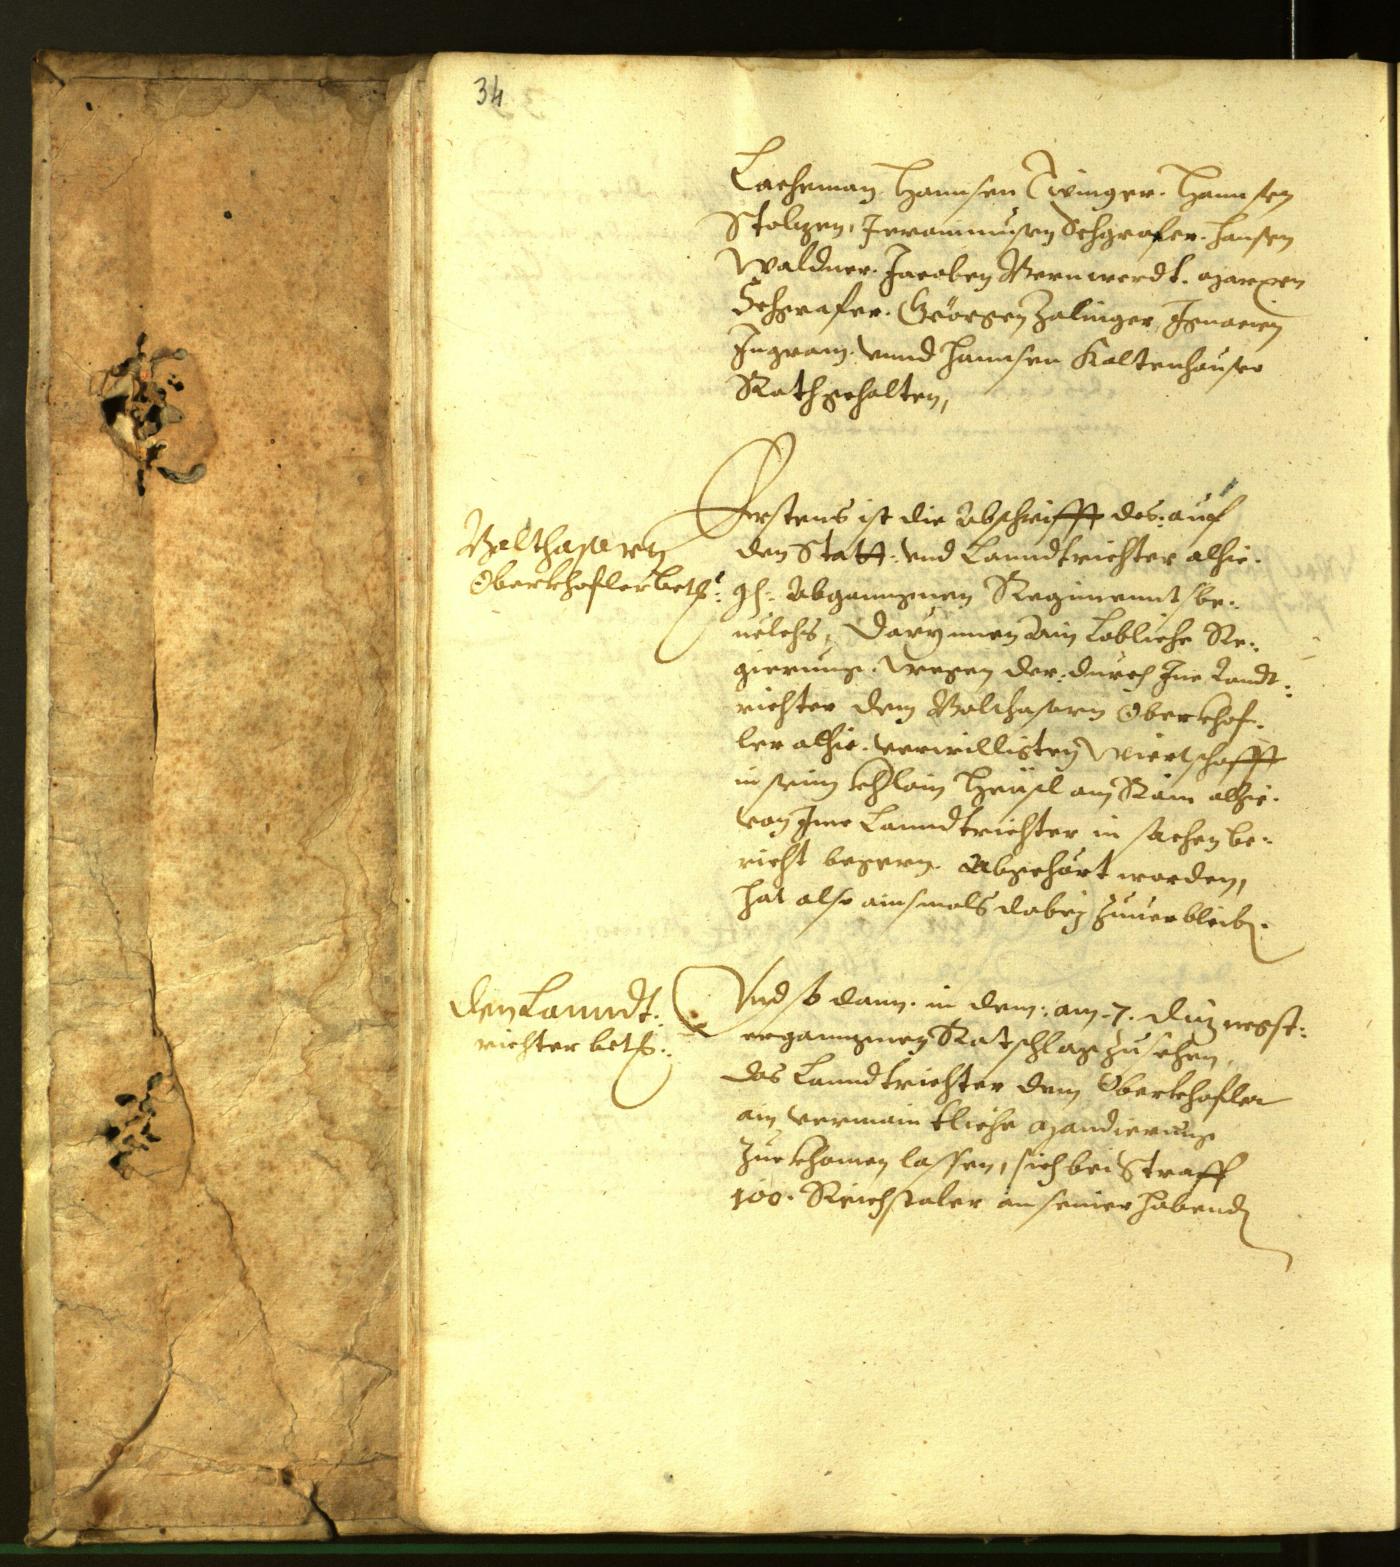 34
Lachman, Hannsen Zwinger. Hannsen
Stolzen, Jeronimusen Schgrafer. Hansen
Waldner. Jacoben Bernwerdt. Marxen
Schgrafer. Geörgen Zalinger, Ignacien
Ingram. vnnd Hannsen Kaltenhauser
Rath gehalten,
Balthasarn
Oberkhofler betr:
Erstens ist die Abschrifft des: auf
den Statt- vnd Lanndtrichter alhie.
gh: Abganngnen Regimennts be:
uelchs, Darynnen Ain Lobliche Re:
gierung. wegen der: durch Ine Landt:
richter dem Balthasarn Oberkhof:
ler alhie. verwilligten Wiertschafft
in seim khlain Heüsl am Rain alhie.
von Ime Lanndtrichter in sachen be:
richt begern. Abgehört worden,
hat also ainsmals dabej zuuerbleib.
den Lanndt:
richter betr:
Vnd so dann. in dem: am .7. diz negst:
erganngnen Ratschlag zusehen,
das Lanndtrichter dem Oberkhofler
ain vermaintliche Mandierung
zuekhomen lassen, sich bei Straff
100. Reichstaler an seiner habend